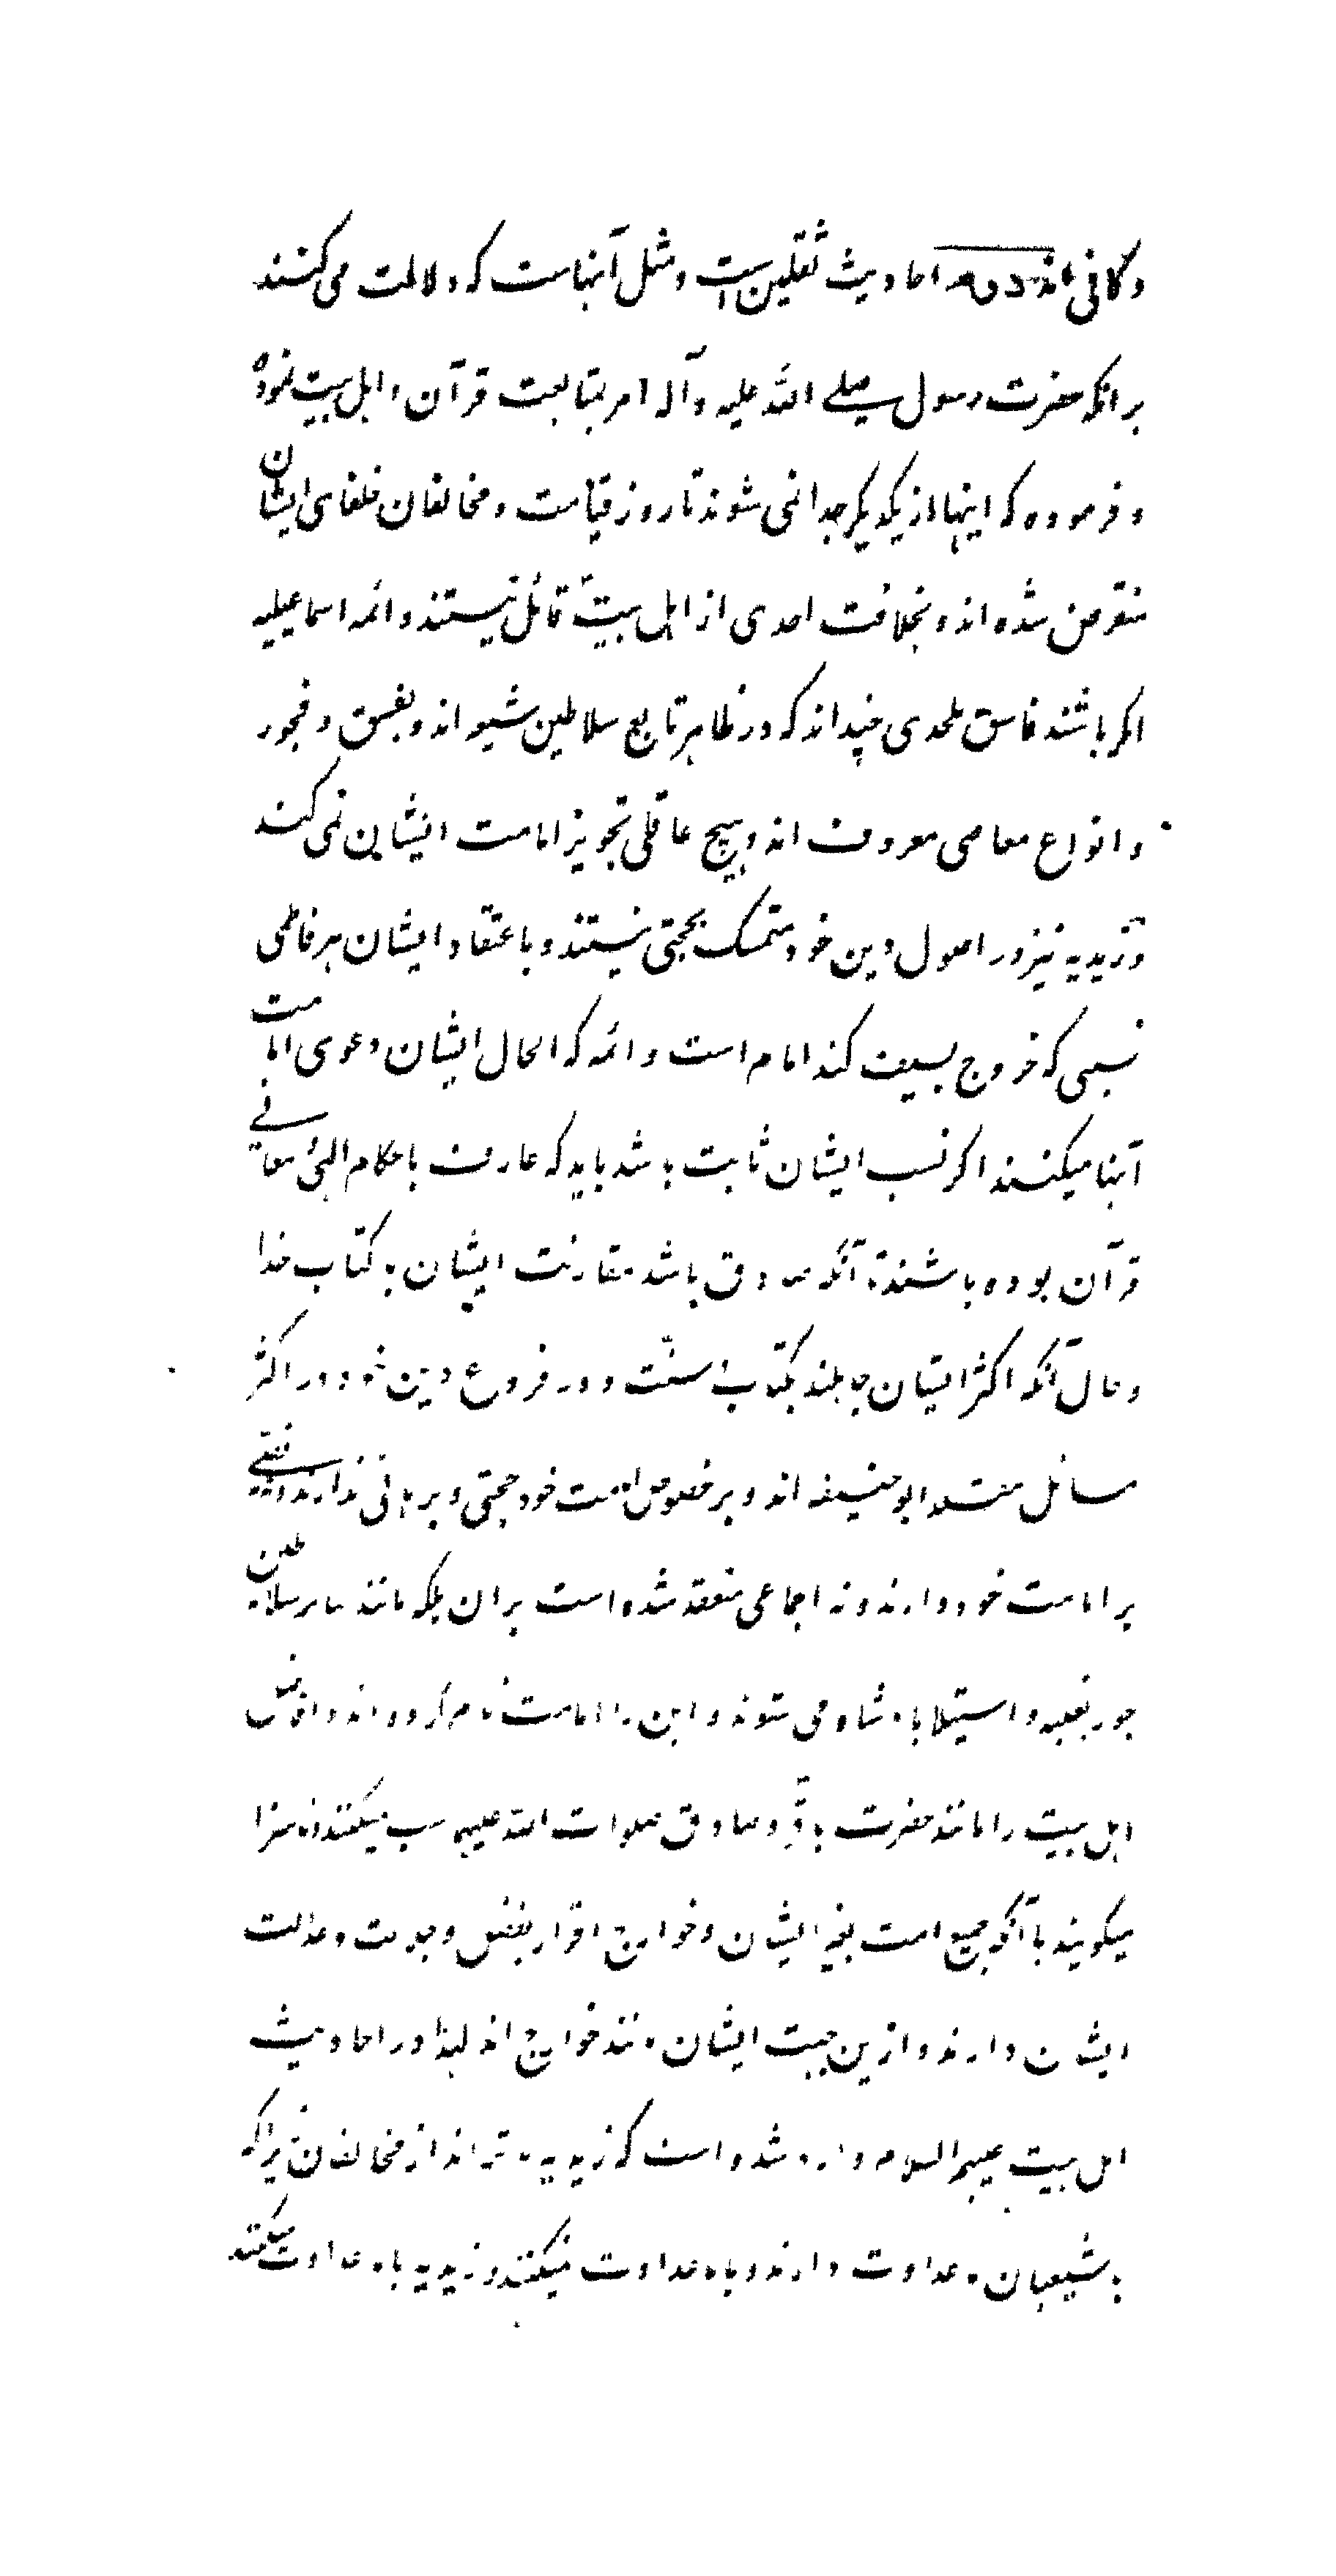 و کافی اند دوم احادیث ثقلین است و مثل آنهاست که دلالت می کنند
بر انکه حضرت رسول صلے اللّه علیه و آله امر بمتابعت قرآن و اہل بیت نموده
و فرموده که اینها از یکدیگر جدا نمی شوند تا روز قیامت و مخالفان خلفای ایشان
منقرض شده اند و بخلافت احدی از اہل بیت قائل نیستند و ائمه اسماعیلیه
اگر باشند فاسق ملحدی چند اند که در ظاہر تابع سلاطین شیعه اند و بفسق و فجور
و انواع معاصی معروف اند و ہیچ عاقلی تجویز امامت ایشان نمی کند
و زیدیه نیز در اصول دین خود متمسک بحجتی نیستند و باعتقاد ایشان ہر فاطمی
نسبی که خروج بسیف کند امام است و ائمه که الحال ایشان دعوی امامت
آنها میکنند اگر نسب ایشان ثابت باشد باید که عارف باحکام الہی و معانی
قرآن بوده باشند تا آنکه صادق باشد مقارنت ایشان با کتاب خدا
و حال آنکه اکثر ایشان جاہلند بکتاب و سنّت و در فروع دین خود در اکثر
مسائل مقلد ابو حنیفه اند و بر خصوص امامت خود حجتی و برہانی ندارند
بر امامت خود دارند و نه اجماعی منعقد شده است بر ان بلکه مانند سایر سلاطین
جور بغلبه و استیلا پادشاه می شوند و این را امامت نام کرده اند و
اہل بیت را مانند حضرت باقر و صادق صلوات اللّه علیہم سب میکنند و ناسزا
میگویند با آنکه جمیع امت بغیر ایشان و خوارج اقرار بفضل و جلالت و عدالت
ایشان دارند و ازین جہت ایشان مانند خوارج اند لہذا در احادیث
اہل بیت علیہم السلام وارد شده است که زیدیه بدتر اند از مخالفان زیراکه
با شیعیان ما عداوت دارند و با ما عداوت نمیکنند و زیدیه با ما عداوت میکنند